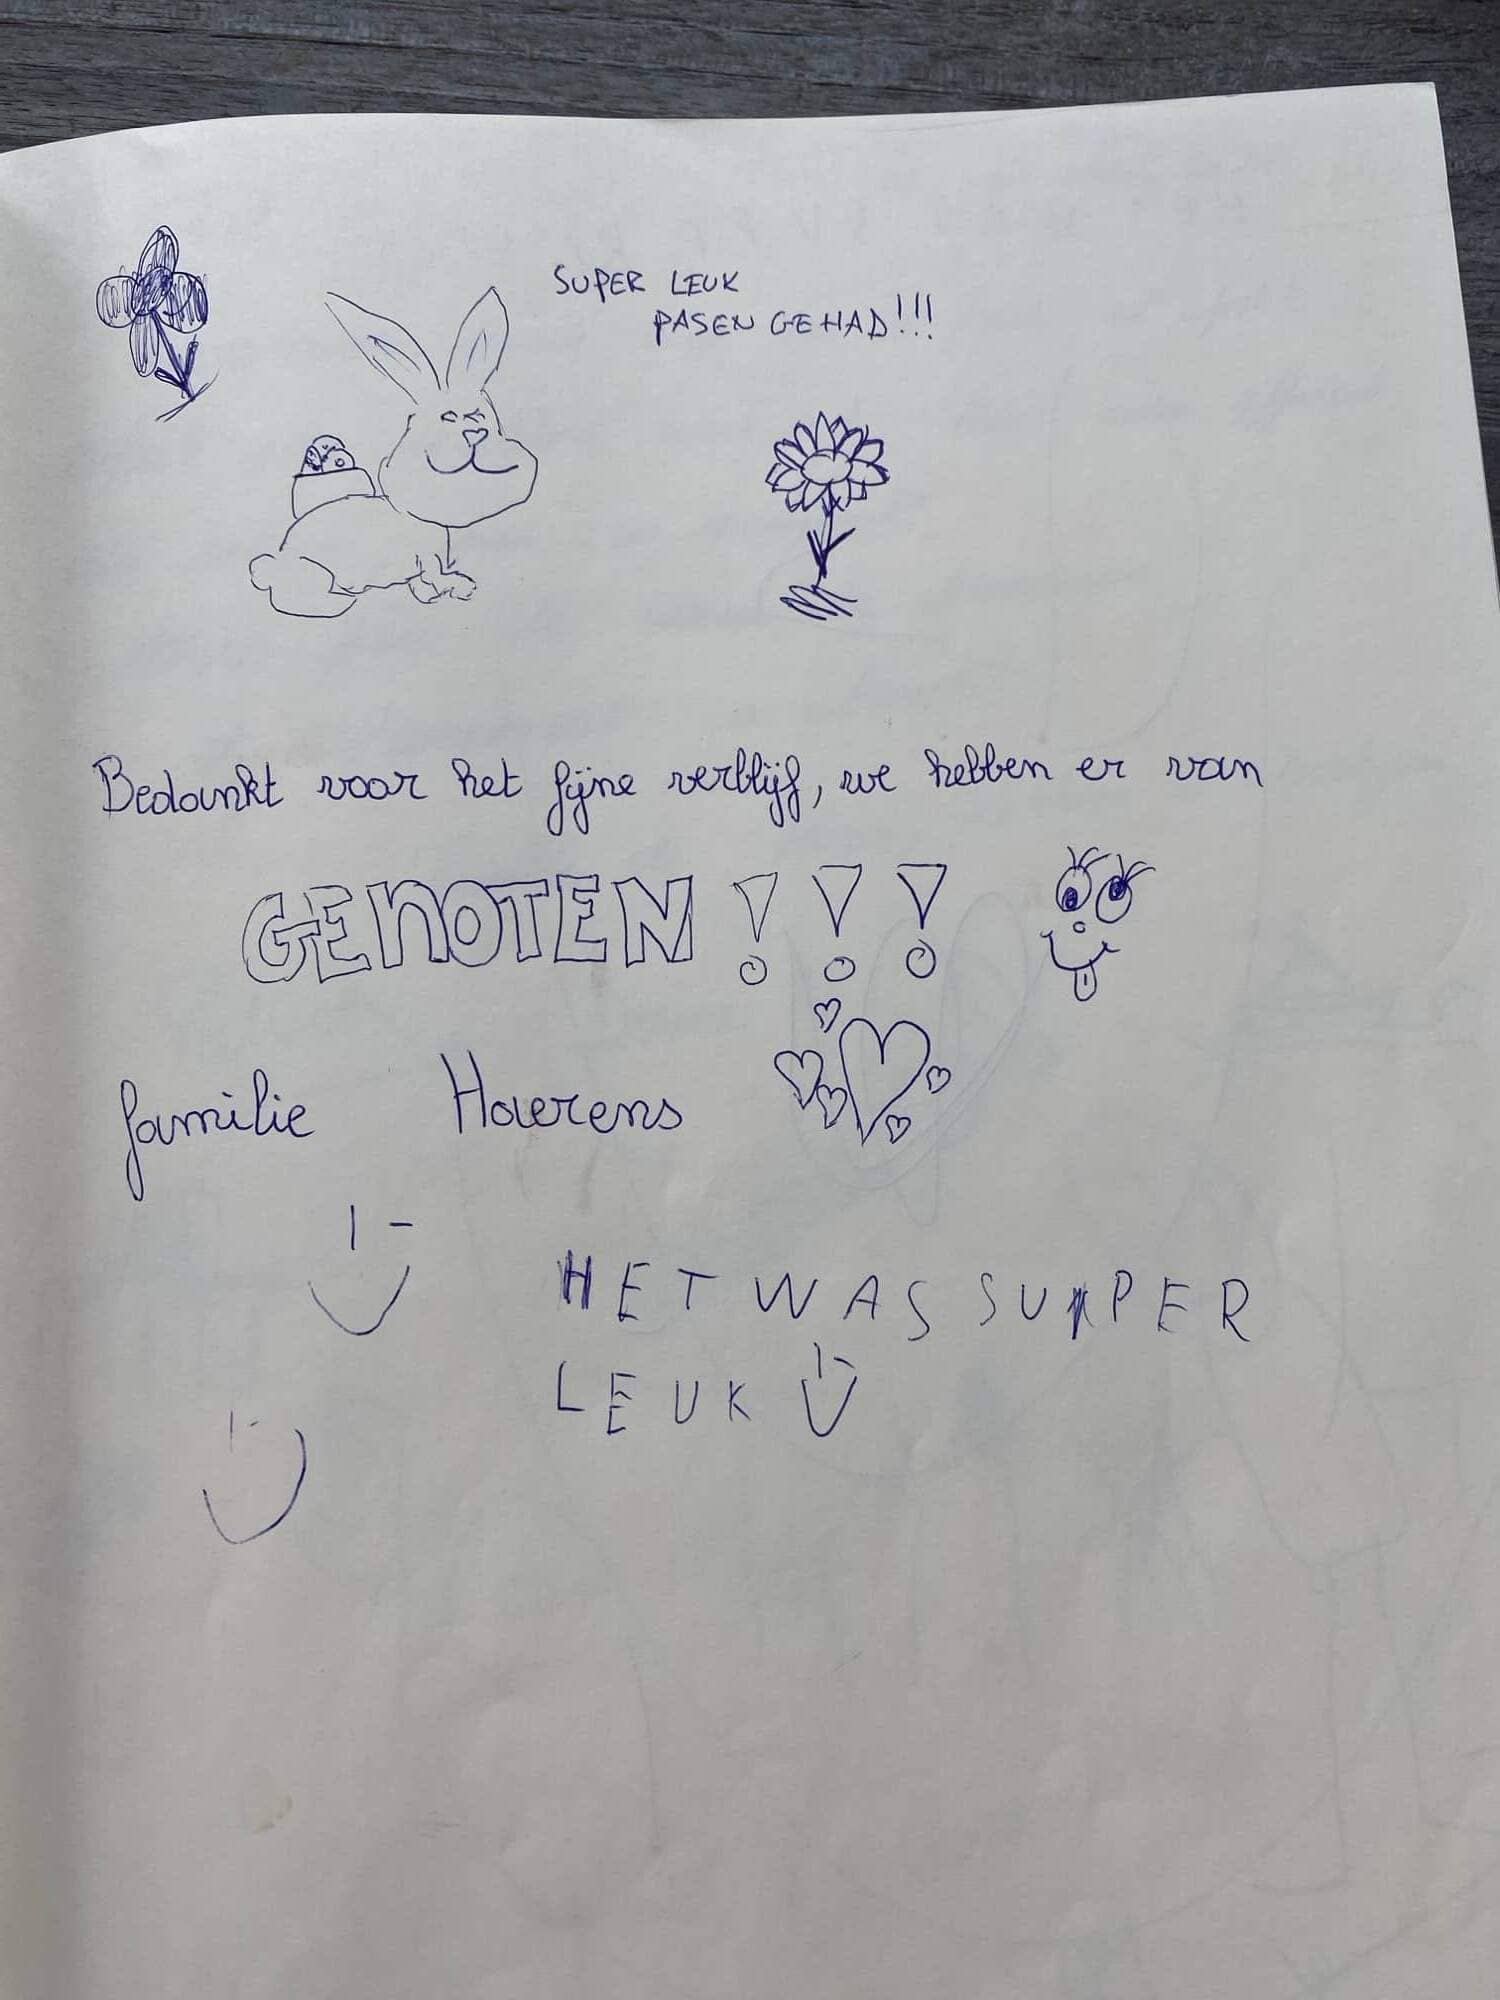 SUPER LEUK
PASEN GEHAD!!!
Bedankt voor het fijne verblijf, we hebben er van
GENOTEN!!!
familie Haerens
HET WAS SUPER
LEUK